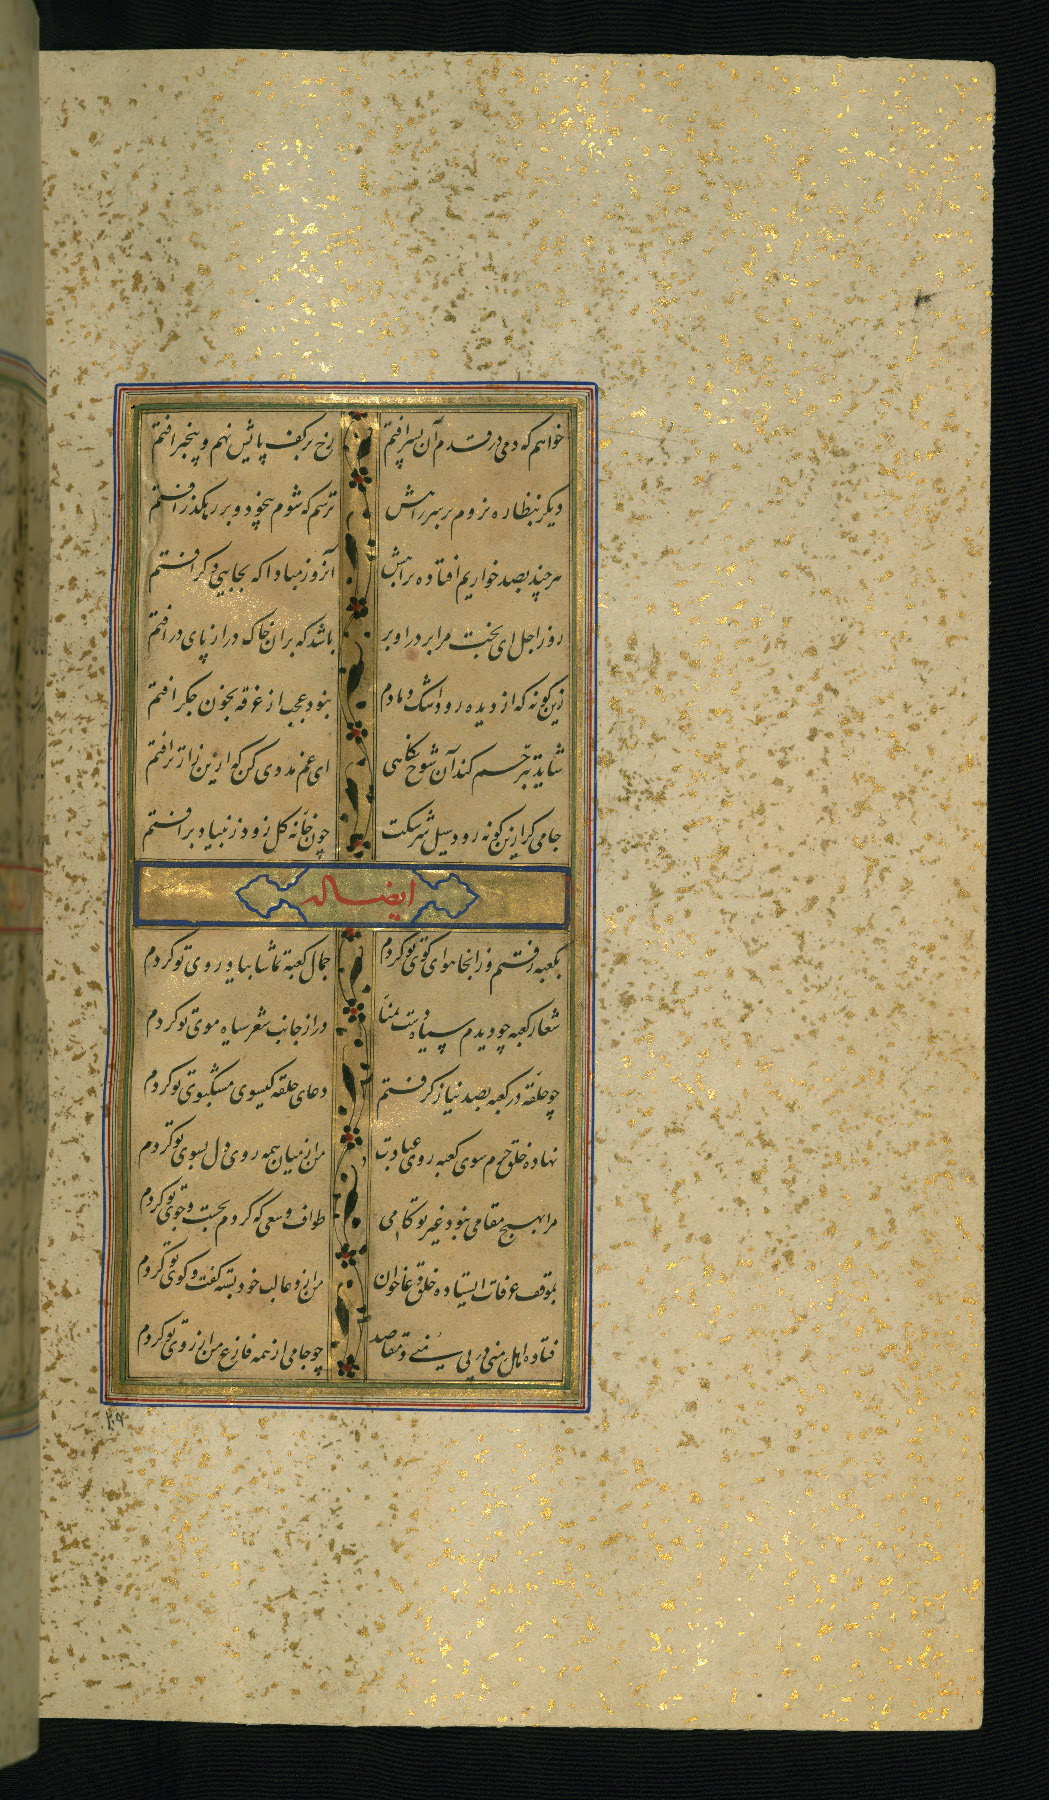 خواهم که دمی در قدم آن پسر افتم رخ بر کف پایش نهم و بیخبر افتم
دیگر بنظاره نروم بر سر راهش ترسم که شوم بیخود و بر رهگذر افتم
هر چند بصد خواریم افتاده براهش آنروز مبادا که بجایی دگر افتم
روز اجل ای بخت مرا بر در او بر باشد که بر آن خاک در از پای در افتم
زین گونه که از دیده رود اشک دمادم نبود عجب ار غرقه بخون جگر افتم
شاید بترحم کند آن شوخ نگاهی ای غم مددی کن که ازین زارتر افتم
جامی گر ازین گونه رود سیل سرشکت چون خانه گل زود ز بنیاد بر افتم
ایضا له
بکعبه رفتم و زانجا هوای کوی تو کردم جمال کعبه تماشا بیاد روی تو کردم
شعار کعبه چو دیدم سیاه دست تمنا دراز جانب شعر سیاه موی تو کردم
چو حلقه در کعبه بصد نیاز گرفتم دعای حلقه گیسوی مشکبوی تو کردم
نهاده خلق حرم سوی کعبه روی عبادت من از میان همه روی دل بسوی تو کردم
مرا بهیچ مقامی نبود غیر تو کامی طواف و سعی که کردم بجست و جوی تو کردم
بموقف عرفات ایستاده خلق دعا خوان من از دعا لب خود بسته گفت و گوی تو کردم
فتاده اهل منی در پی منی و مقاصد چو جامی از همه فارغ من آرزوی تو کردم